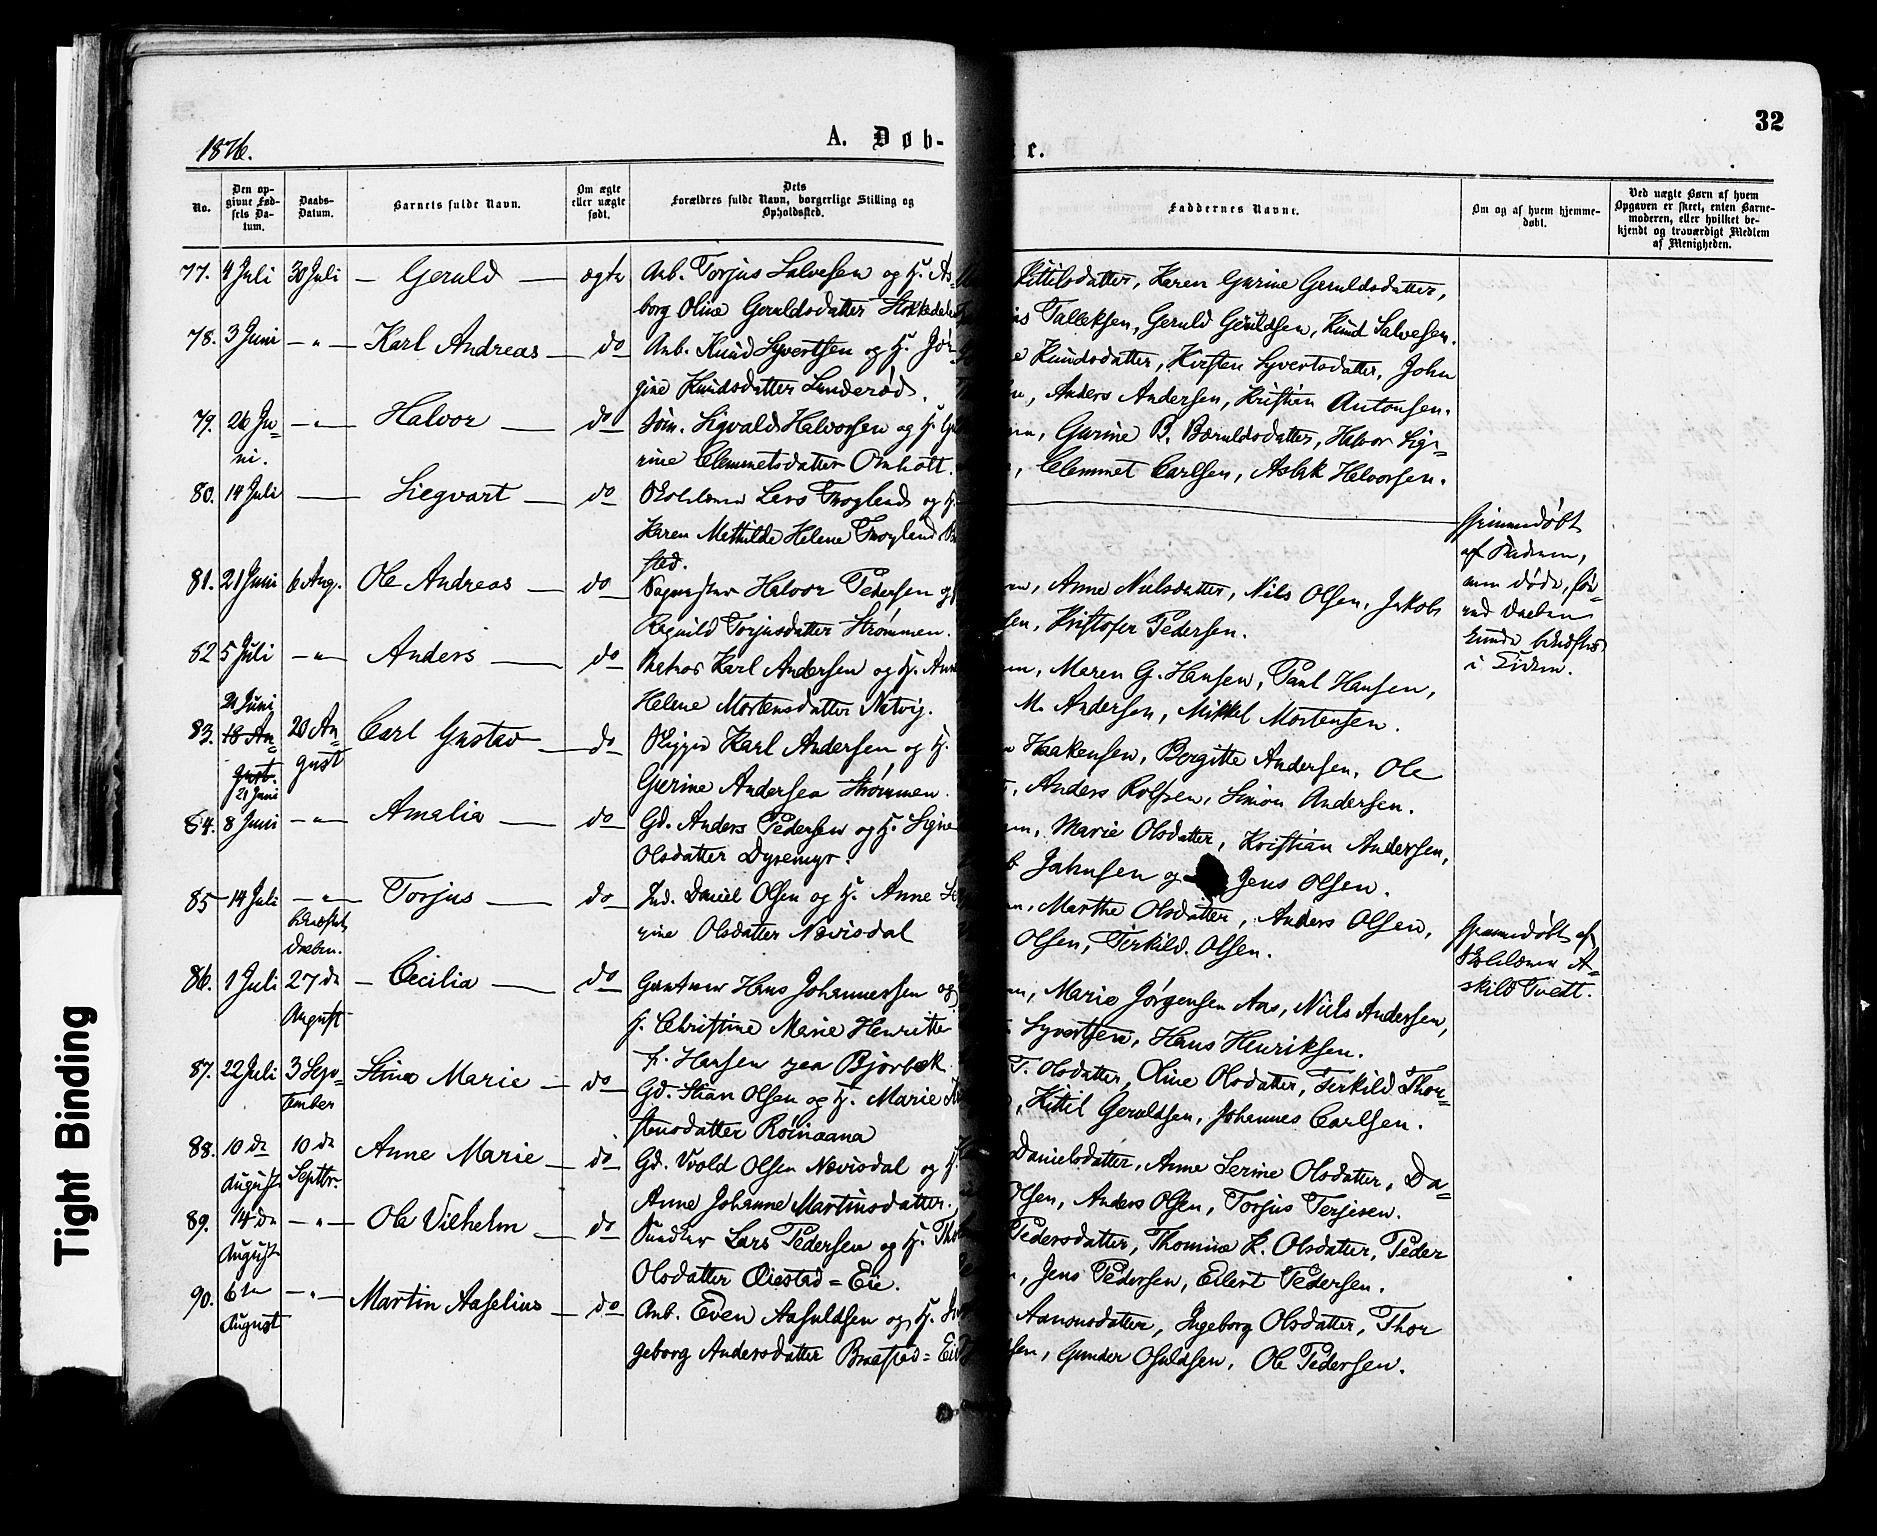 32
1876.
A. Døb-
e.
No.
Den op-
givne Fød-
sels Da-
tum.
Daabs-
Datum.
Barnets fulde Navn.
Om ægte
eller uægte
født.
Dets
Forældres fulde Navn, borgerlige Stilling og
Opholdssted.
Faddernes Navne.
Om og af hvem hjemme-
døbt.
Ved uægte Børn af hvem
Opgaven er skeet, enten Barne-
moderen, eller hvilket be-
kjendt og troværdigt Medlem
af Menigheden.
77. 4 Juli 30 Juli - Gerald - ægte Arb. Torjus Salvesen og H. As-
borg Oline Geruldsdatter
Kittilsdatter, Karen Gurine Geruldsdatter,
Tallaksen, Geruld Geruldsen, Knud Salvesen.
78. 3 Juni - " - Karl Andreas - do Arb. Knud Syvertsen og H. Jør-
gine Knudsdatter Lunderød.
Knudsdatter, Kirsten Syvertsdatter, John
Anders Andersen, Kristian Antonsen.
79. 26 Ju-
ni. - " - Halvor - do Søm. Sigvald Halvorsen og H. Gu
rine Clemmetsdatter Omholt.
Gurine B. Bæruldsdatter, Halvor Sig-
Clemmet Carlsen, Aslak Halvorsen.
80. 14 Juli - Siegvart - do Skolelærer Lars Froyland og H.
Karen Mathilde Helene Froyland
sted.
Hjemmedøbt
af Faderen,
men døde, før-
end Daaben
kunde bekræftes
i Kirken.
81. 21 Juni 6 Aug. Ole Andreas - do Bagmester Halvor Pedersen og
Ragnild Torjusdatter Strømmen.
Anne Nielsdatter, Nils Olsen, Jakob
Kristofer Pedersen.
82 5 Juli - " - Anders - do Matros Karl Andersen og H. Anne
Helene Mortensdatter Natvig.
Maren G. Hansen, Paul Hansen,
M. Andersen, Mikkel Mortensen.
21 Juni
83. 18 Au-
gust.
21 Juni
20 Au-
gust
Carl Gustav - do Skipper Karl Andersen og H.
Gurine Andersen Strømmen.
Haakensen, Borgitte Andersen, Ole
Anders Rolfsen, Simon Andersen.
84. 8 Juni - " - Amalia - do Gd. Anders Pedersen og H. Signe
Olsdatter Dyremyr.
Marie Olsdatter, Kristian Andersen,
Jahnsen og Jens Olsen.
85 14 Juli - " - Torjus - do Ind. Daniel Olsen og H. Anne Se
rine Olsdatter Nævisdal
bekræftet
Daaben.
Marthe Olsdatter, Anders Olsen,
Olsen, Terkild Olsen.
Hjemmedøbt af
Skolelærer A-
skild Tvedt.
86. 1 Juli 27 de
August - Cecilia - do Gartner Hans Johannessen og
H. Christine Marie Henriette
f. Hansen paa Bjorbæk
Marie Jørgensen Aas, Niels Andersen,
Syvertsen, Hans Henriksen.
87. 22 Juli 3 Sep-
tember Stina Marie - do Gd. Stian Olsen og H. Marie
stensdatter
T. Olsdatter, Oline Olsdatter, Terkild Thor-
Kittil Geruldsen, Johannes Carlsen.
88. 10 de
August 10 de
Septbr. Anne Marie - do Gd. Vrold Olsen Nævisdal og H.
Anne Johanne Martinsdatter.
Danielsdatter, Anne Serine Olsdatter, Da-
Olsen, Anders Olsen, Torjus Terjesen.
89. 14 de
August - " - Ole Vilhelm - do Snedker Lars Pedersen og H. Tho
Olsdatter Øiestad = Eie.
Pedersdatter, Thomine K. Olsdatter, Peder
Jens Pedersen, Eilert Pedersen.
90. 6te
August - " - Martin Aaselius - do Arb. Even Aasuldsen og H. In
geborg Andersdatter Braasted = Eie
Aanonsdatter, Ingeborg Olsdatter, Thor
Gunder Osuldsen, Ole Pedersen.
Tight Binding